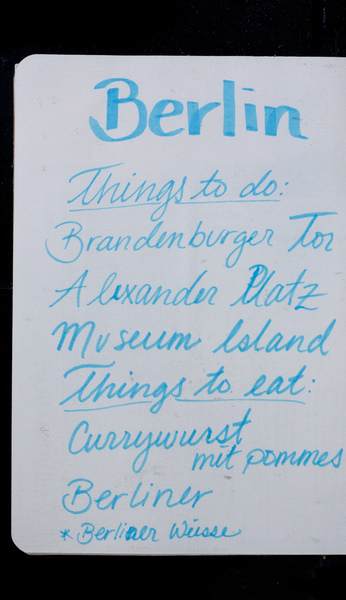 Berlin
Things to do:
Brandenburger Tor
Alexander Platz
Museum Island
Things to eat:
Currywurst
mit pommes
Berliner
* Berliner Weisse